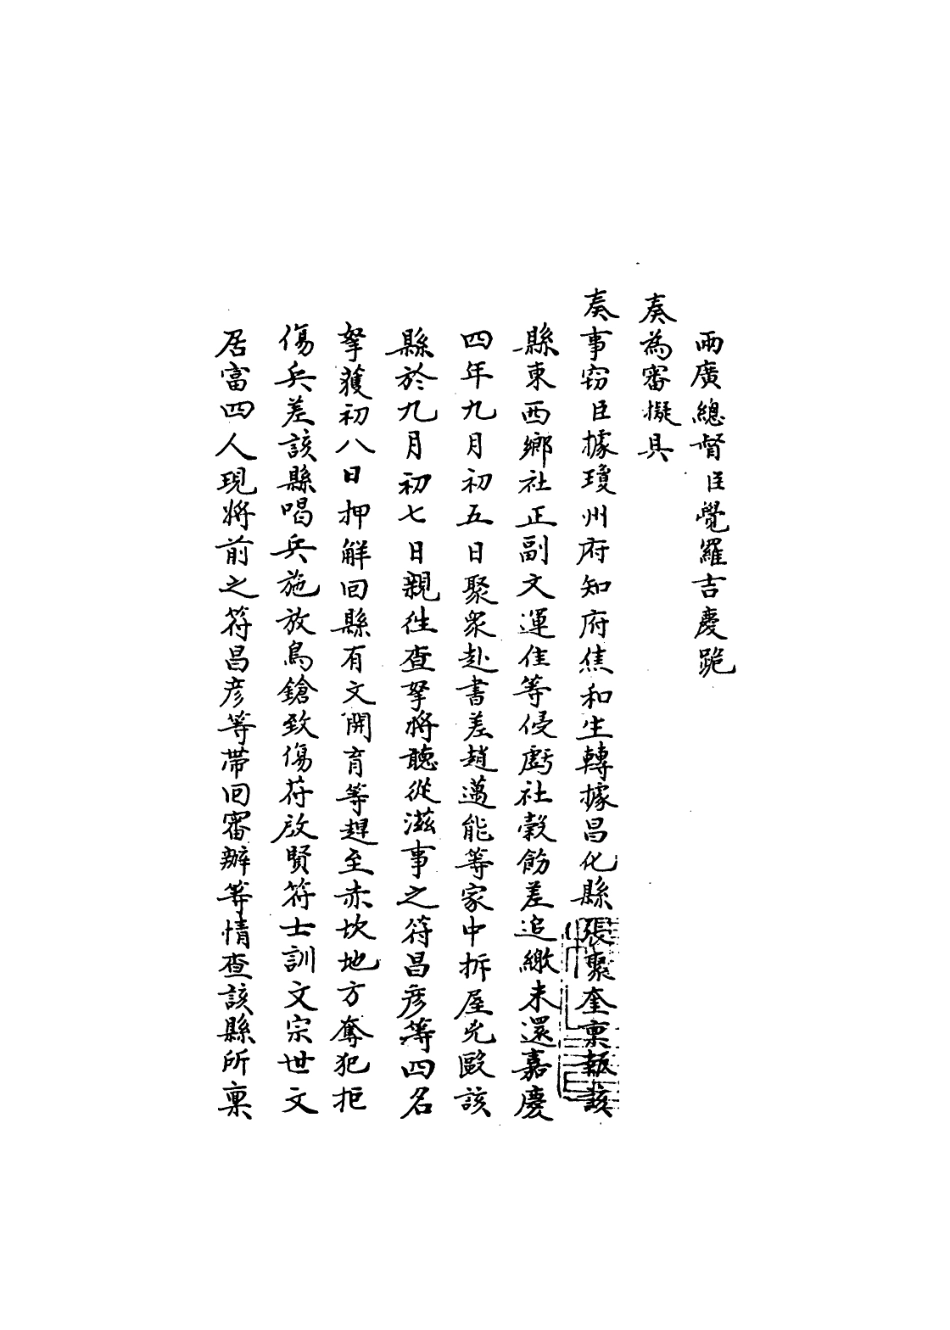 兩廣總督臣覺羅吉慶跪
奏為審擬具
奏事窃臣據瓊州府知府焦和生轉據昌化縣張聚奎稟報該
縣東西鄉社正副文運佳等侵虧社穀飭差追繳未還嘉慶
四年九月初五日聚眾赴書差趙邁能等家中拆屋兇毆該
縣於九月初七日親往查拏將聽從滋事之符昌彥等四名
拏獲初八日押解回縣有文開育等趕至赤坎地方奪犯拒
傷兵差該縣喝兵施放鳥鎗致傷符啟賢符士訓文宗世文
居富四人現將前之符昌彥等帶回審辦等情查該縣所稟